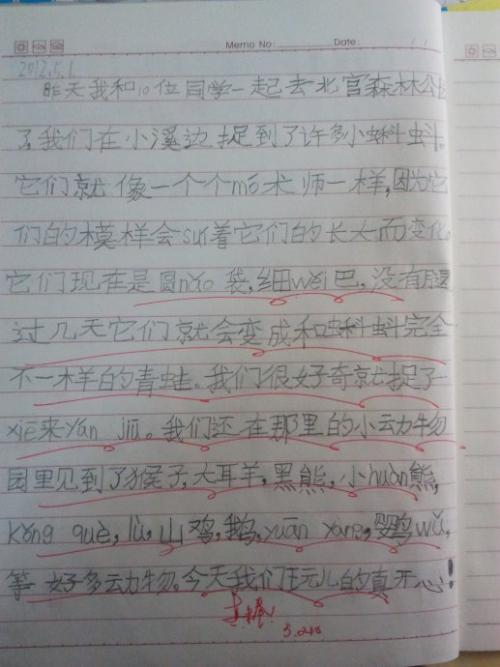 Memo No: Date:
2012.5.1
昨天我和10位同学一起去北宫森林公
了,我们在小溪边捉到了许多小蝌蚪。
它们就像一个个mó术师一样,因为它
们的模样会suí着它们的长大而变化。
它们现在是圆nǎo袋,细wěi巴,没有腿
过几天它们就会变成和蝌蚪完全
不一样的青蛙。我们很好奇就捉了
xiē来yán jiū。我们还在那里的小动物
园里见到了猴子,大耳羊,黑熊,小huàn熊,
kǒng què,lǘ,山鸡,鹅,yuān yang,鹦wǔ,
等好多动物。今天我们玩儿的真开心!